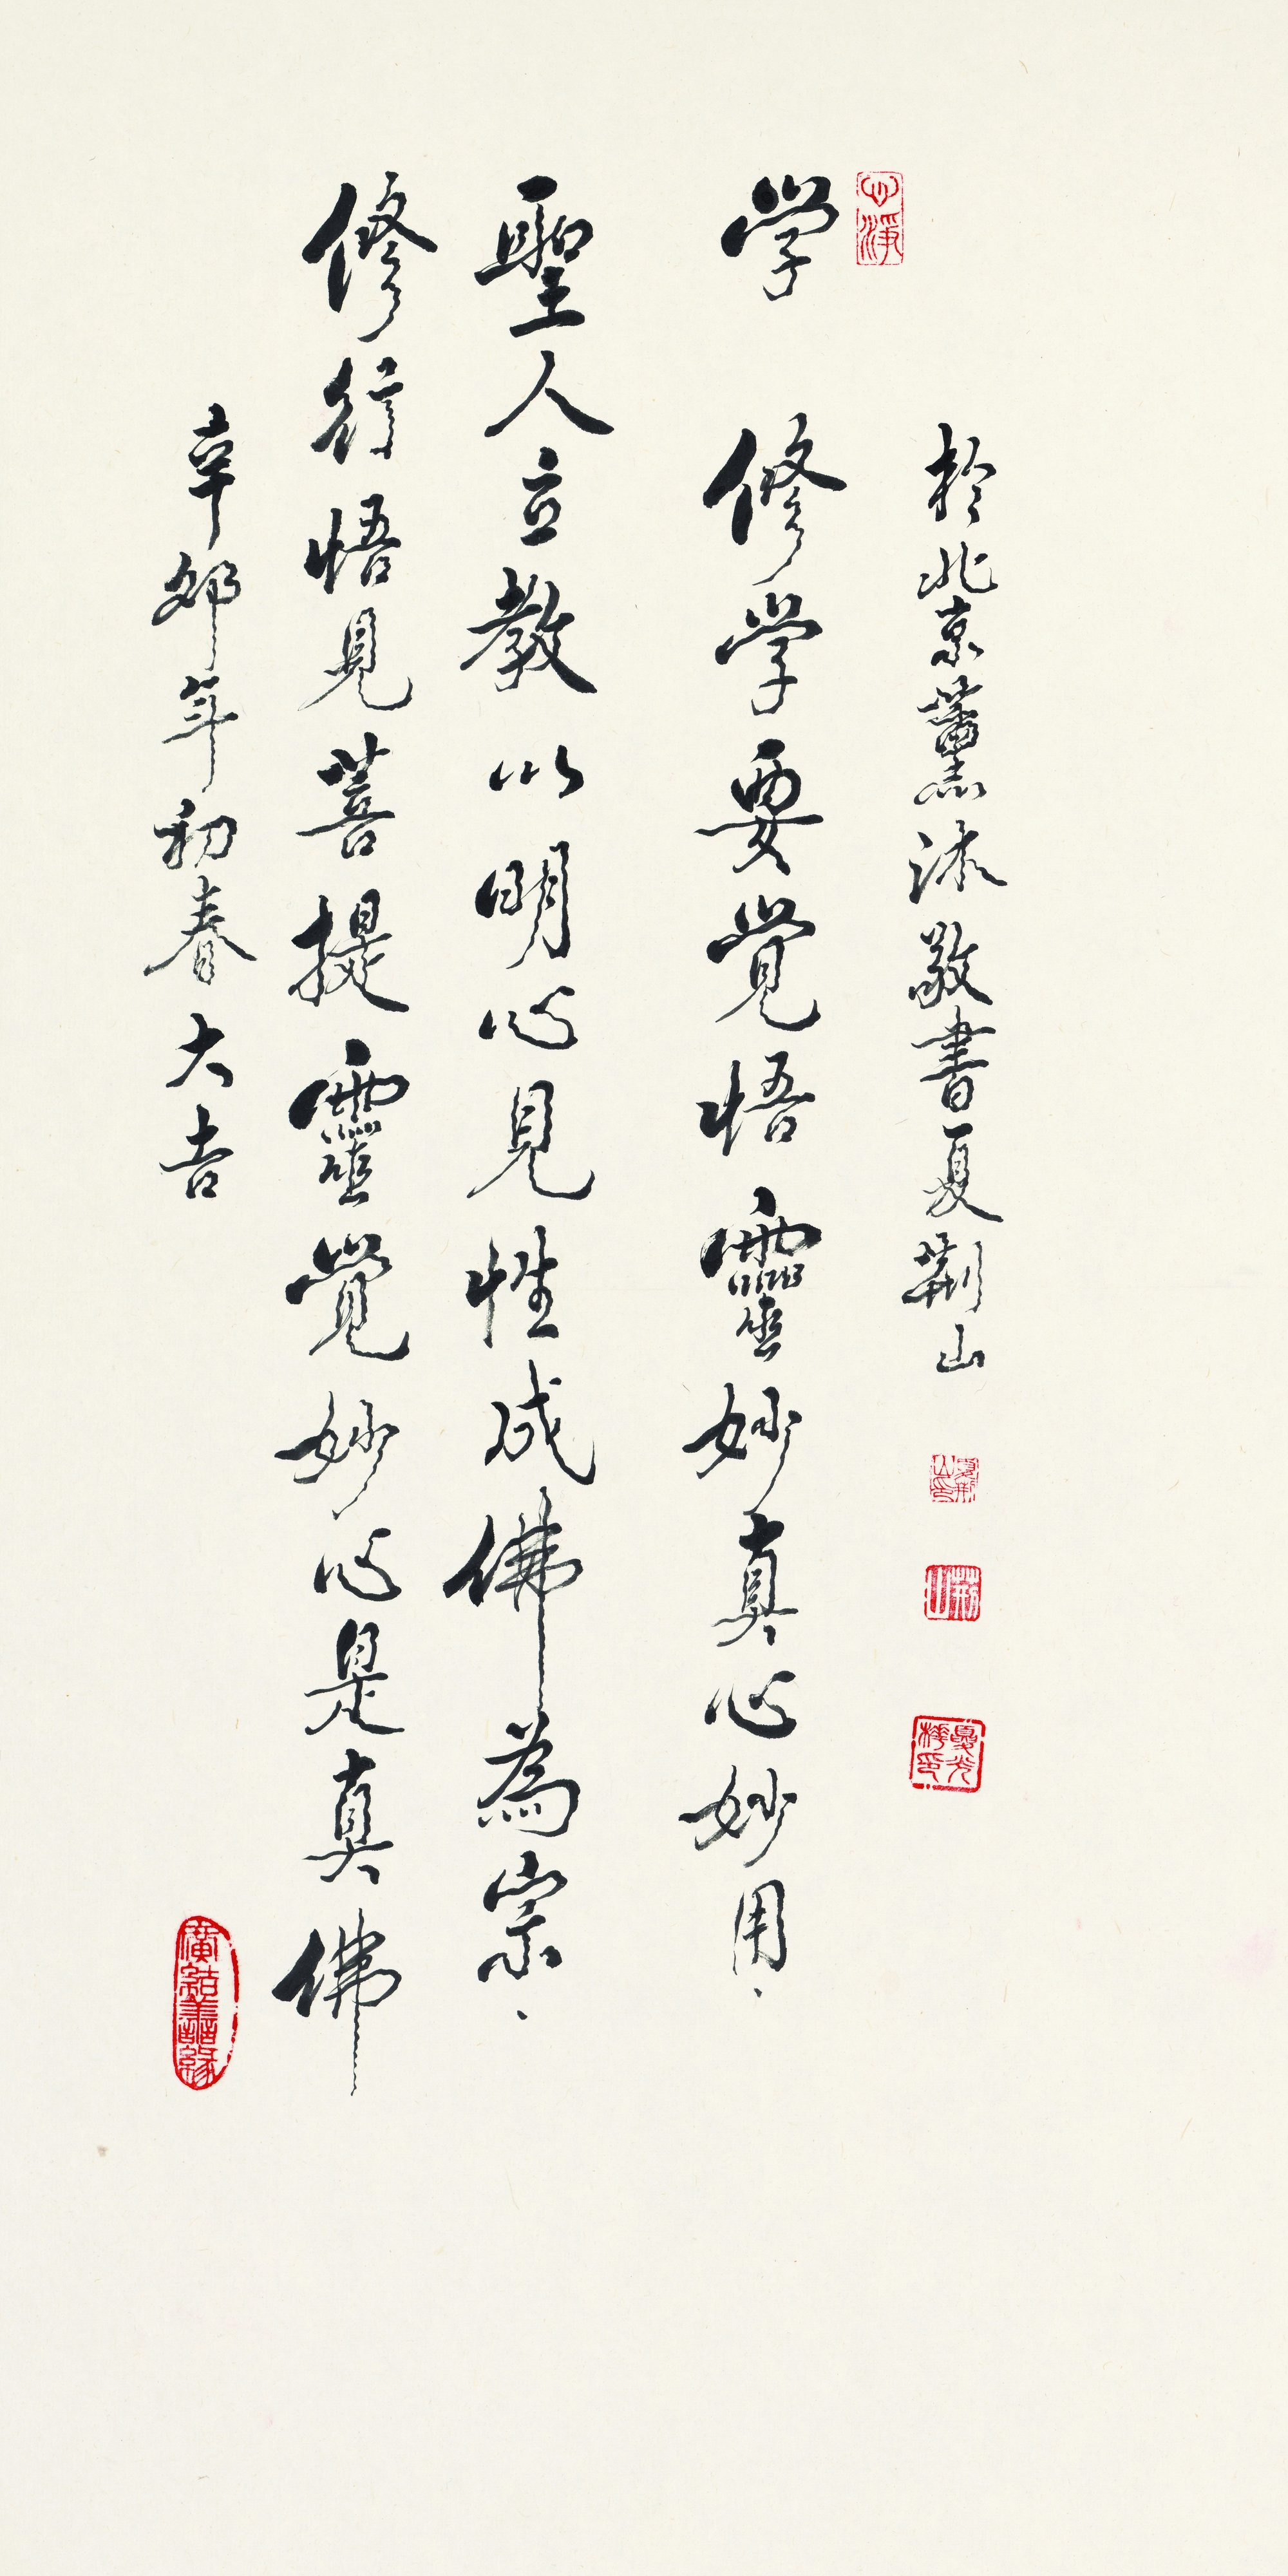 於北京薰沐敬書夏荊山
夏荊山印
荊山
心淨
学　修学要覺悟靈妙真心妙用、
聖人立教以明心見性成佛為宗、
修行悟見菩提靈覺妙心是真佛
辛卯年初春大吉
廣結善緣